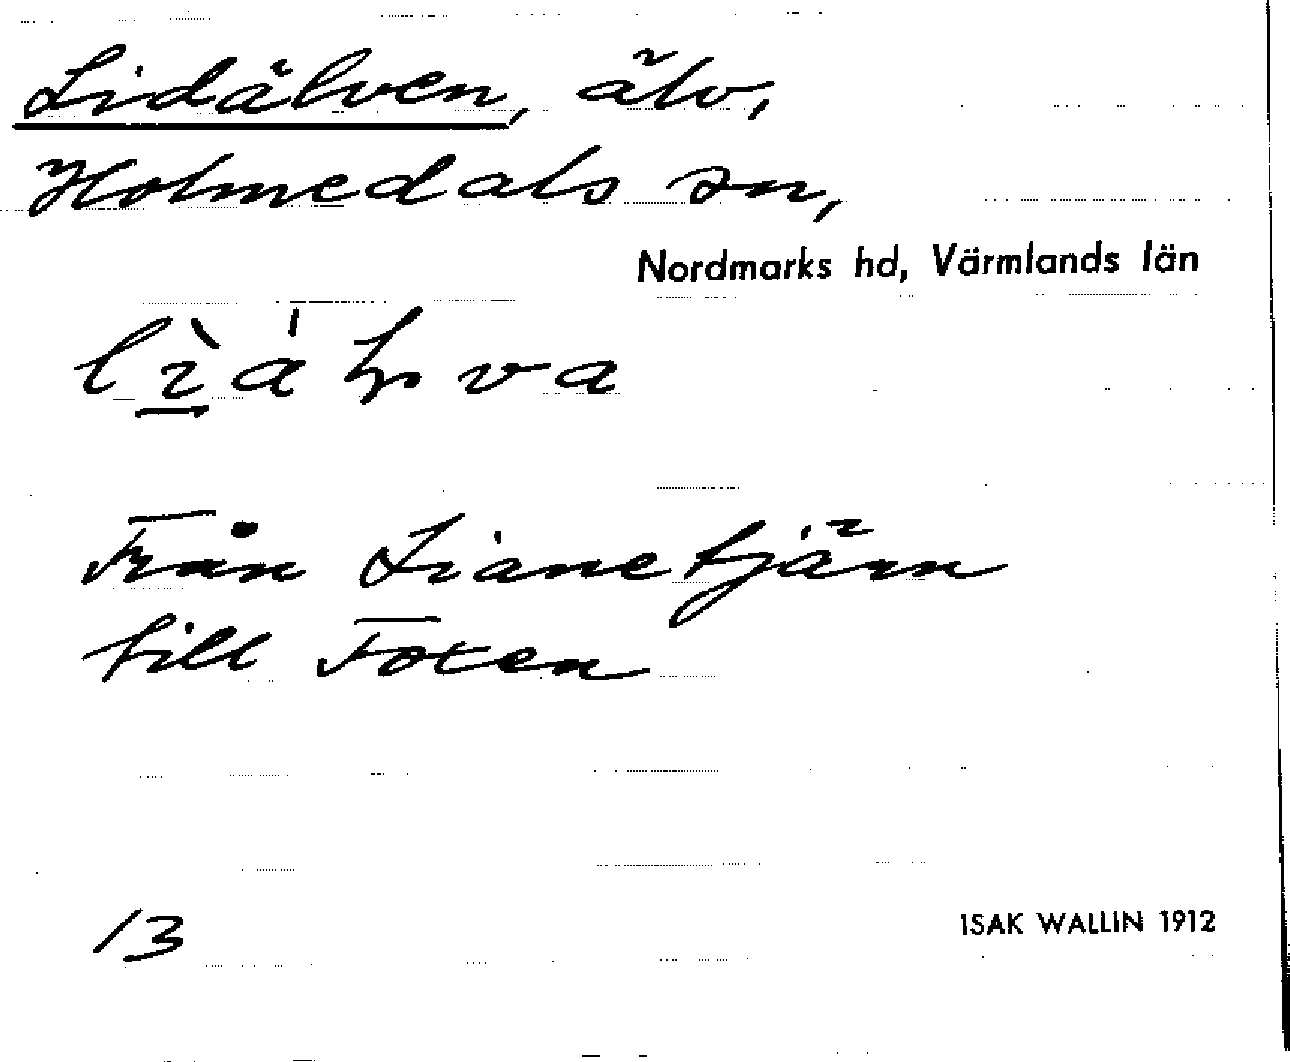 Lidälven, älv,
Holmedals sn,
Nordmarks hd, Värmlands län
Från Lianetjärn
till Foxen
13
ISAK WALLIN 1912